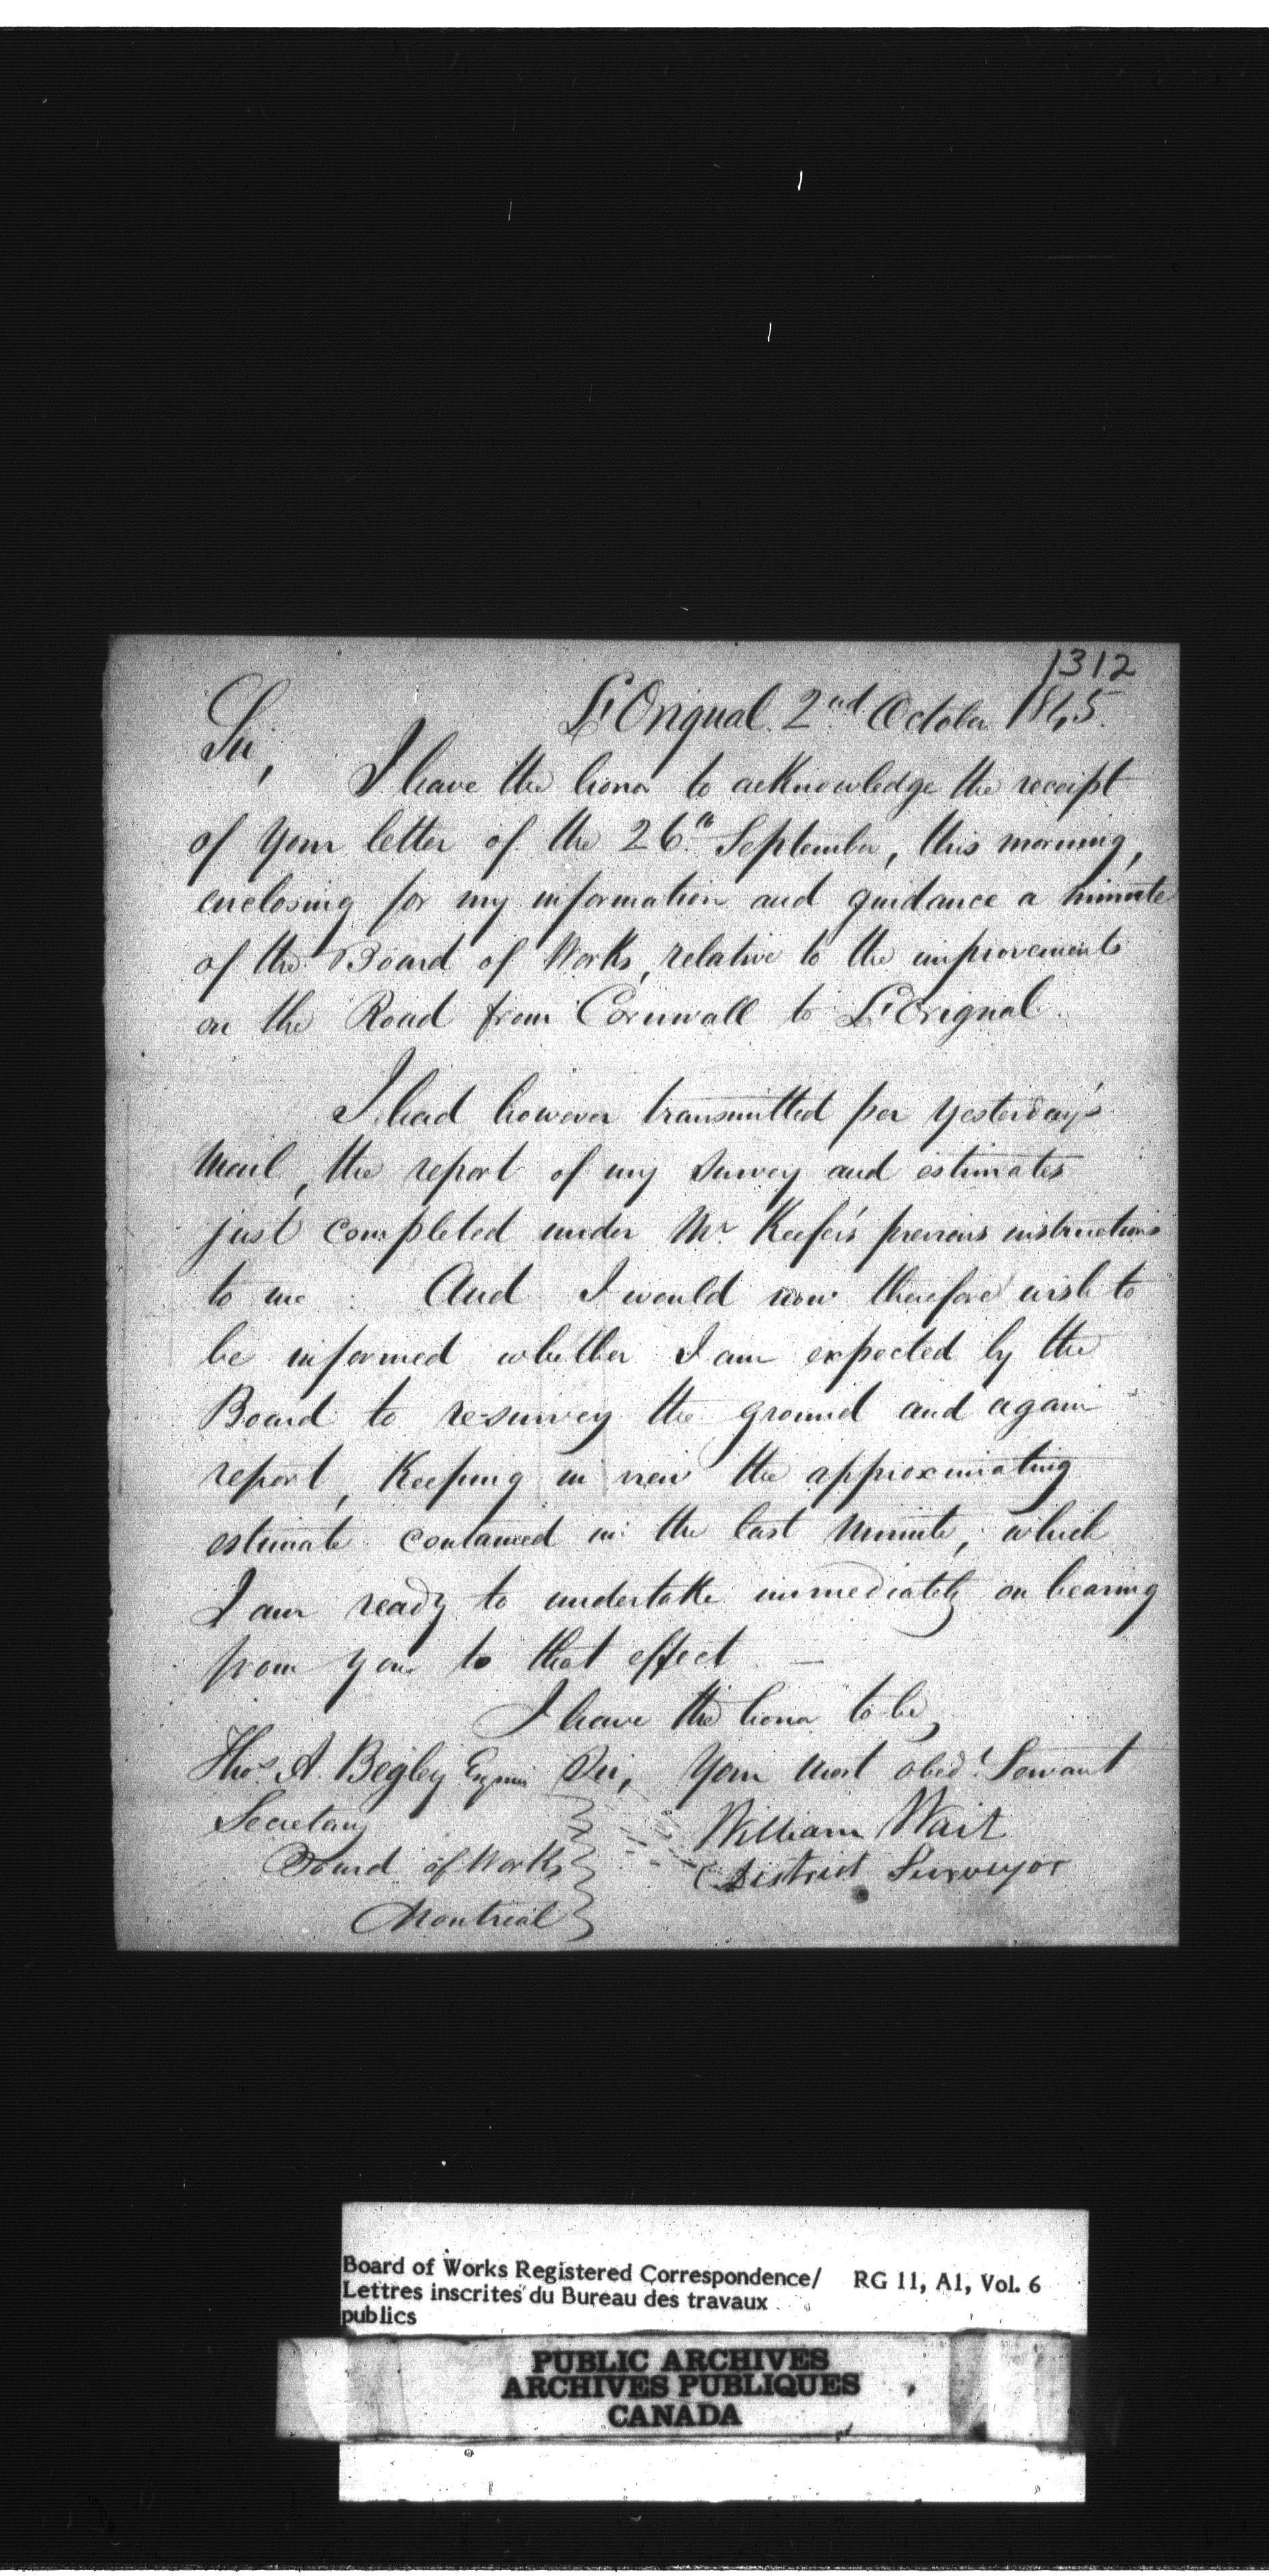 1312
L'Orignal 2nd October 1845.
Sir,
I have the honor to acknowledge the receipt
of your letter of the 26th September, this morning,
enclosing for my information and guidance a minute
of the Board of Works, relative to the improvements
on the Road from Cornwall to L'Orignal.
I had however transmitted per yesterday's
Mail, the report of my survey and estimates
just completed under Mr Keefer's previous instructions
to me. And I would now therefore wish to
be informed whether I am expected by the
Board to re-survey the ground and again
report, Keeping in view the approximating
estimate contained in the last Minute, which
I am ready to undertake immediately on hearing
from you to that effect —
I have the honor to be,
Thos A. Begley Esquire Sir, Your most obedt Servant
Secretary William Wait
Board of Works District Surveyor
Montreal
Board of Works Registered Correspondence/ RG 11, A1, Vol. 6
Lettres inscrites du Bureau des travaux
publics
PUBLIC ARCHIVES
ARCHIVES PUBLIQUES
CANADA